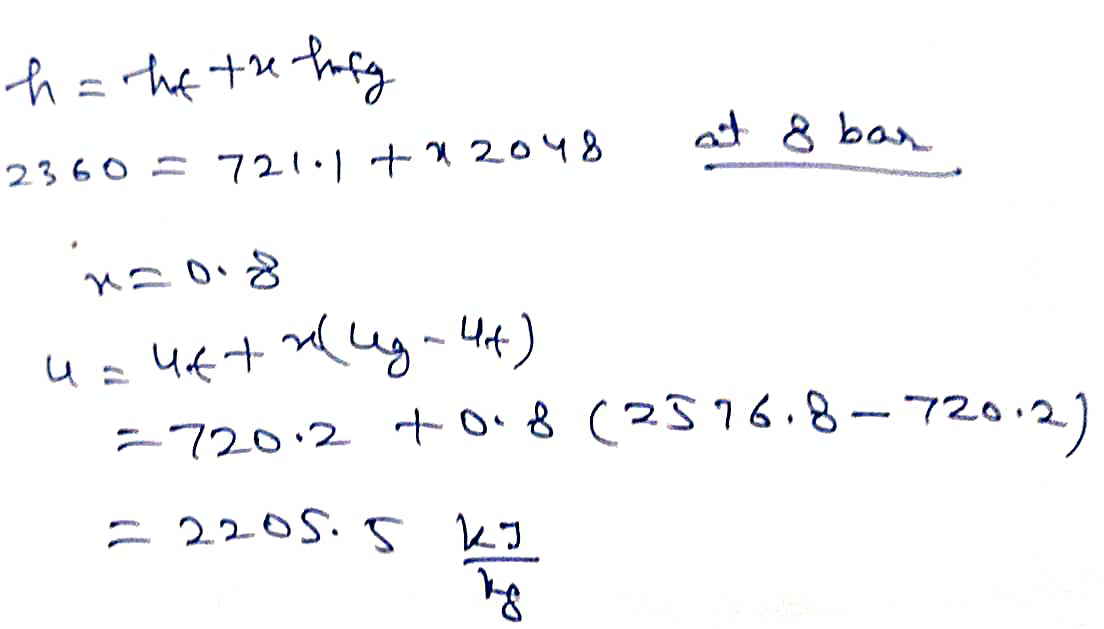 h = hf + x hfg
2360 = 721.1 + x 2048 at 8 bar
x = 0.8
u = uf + x(ug - uf)
= 720.2 + 0.8 (2576.8 - 720.2)
= 2205.5 kJ/kg